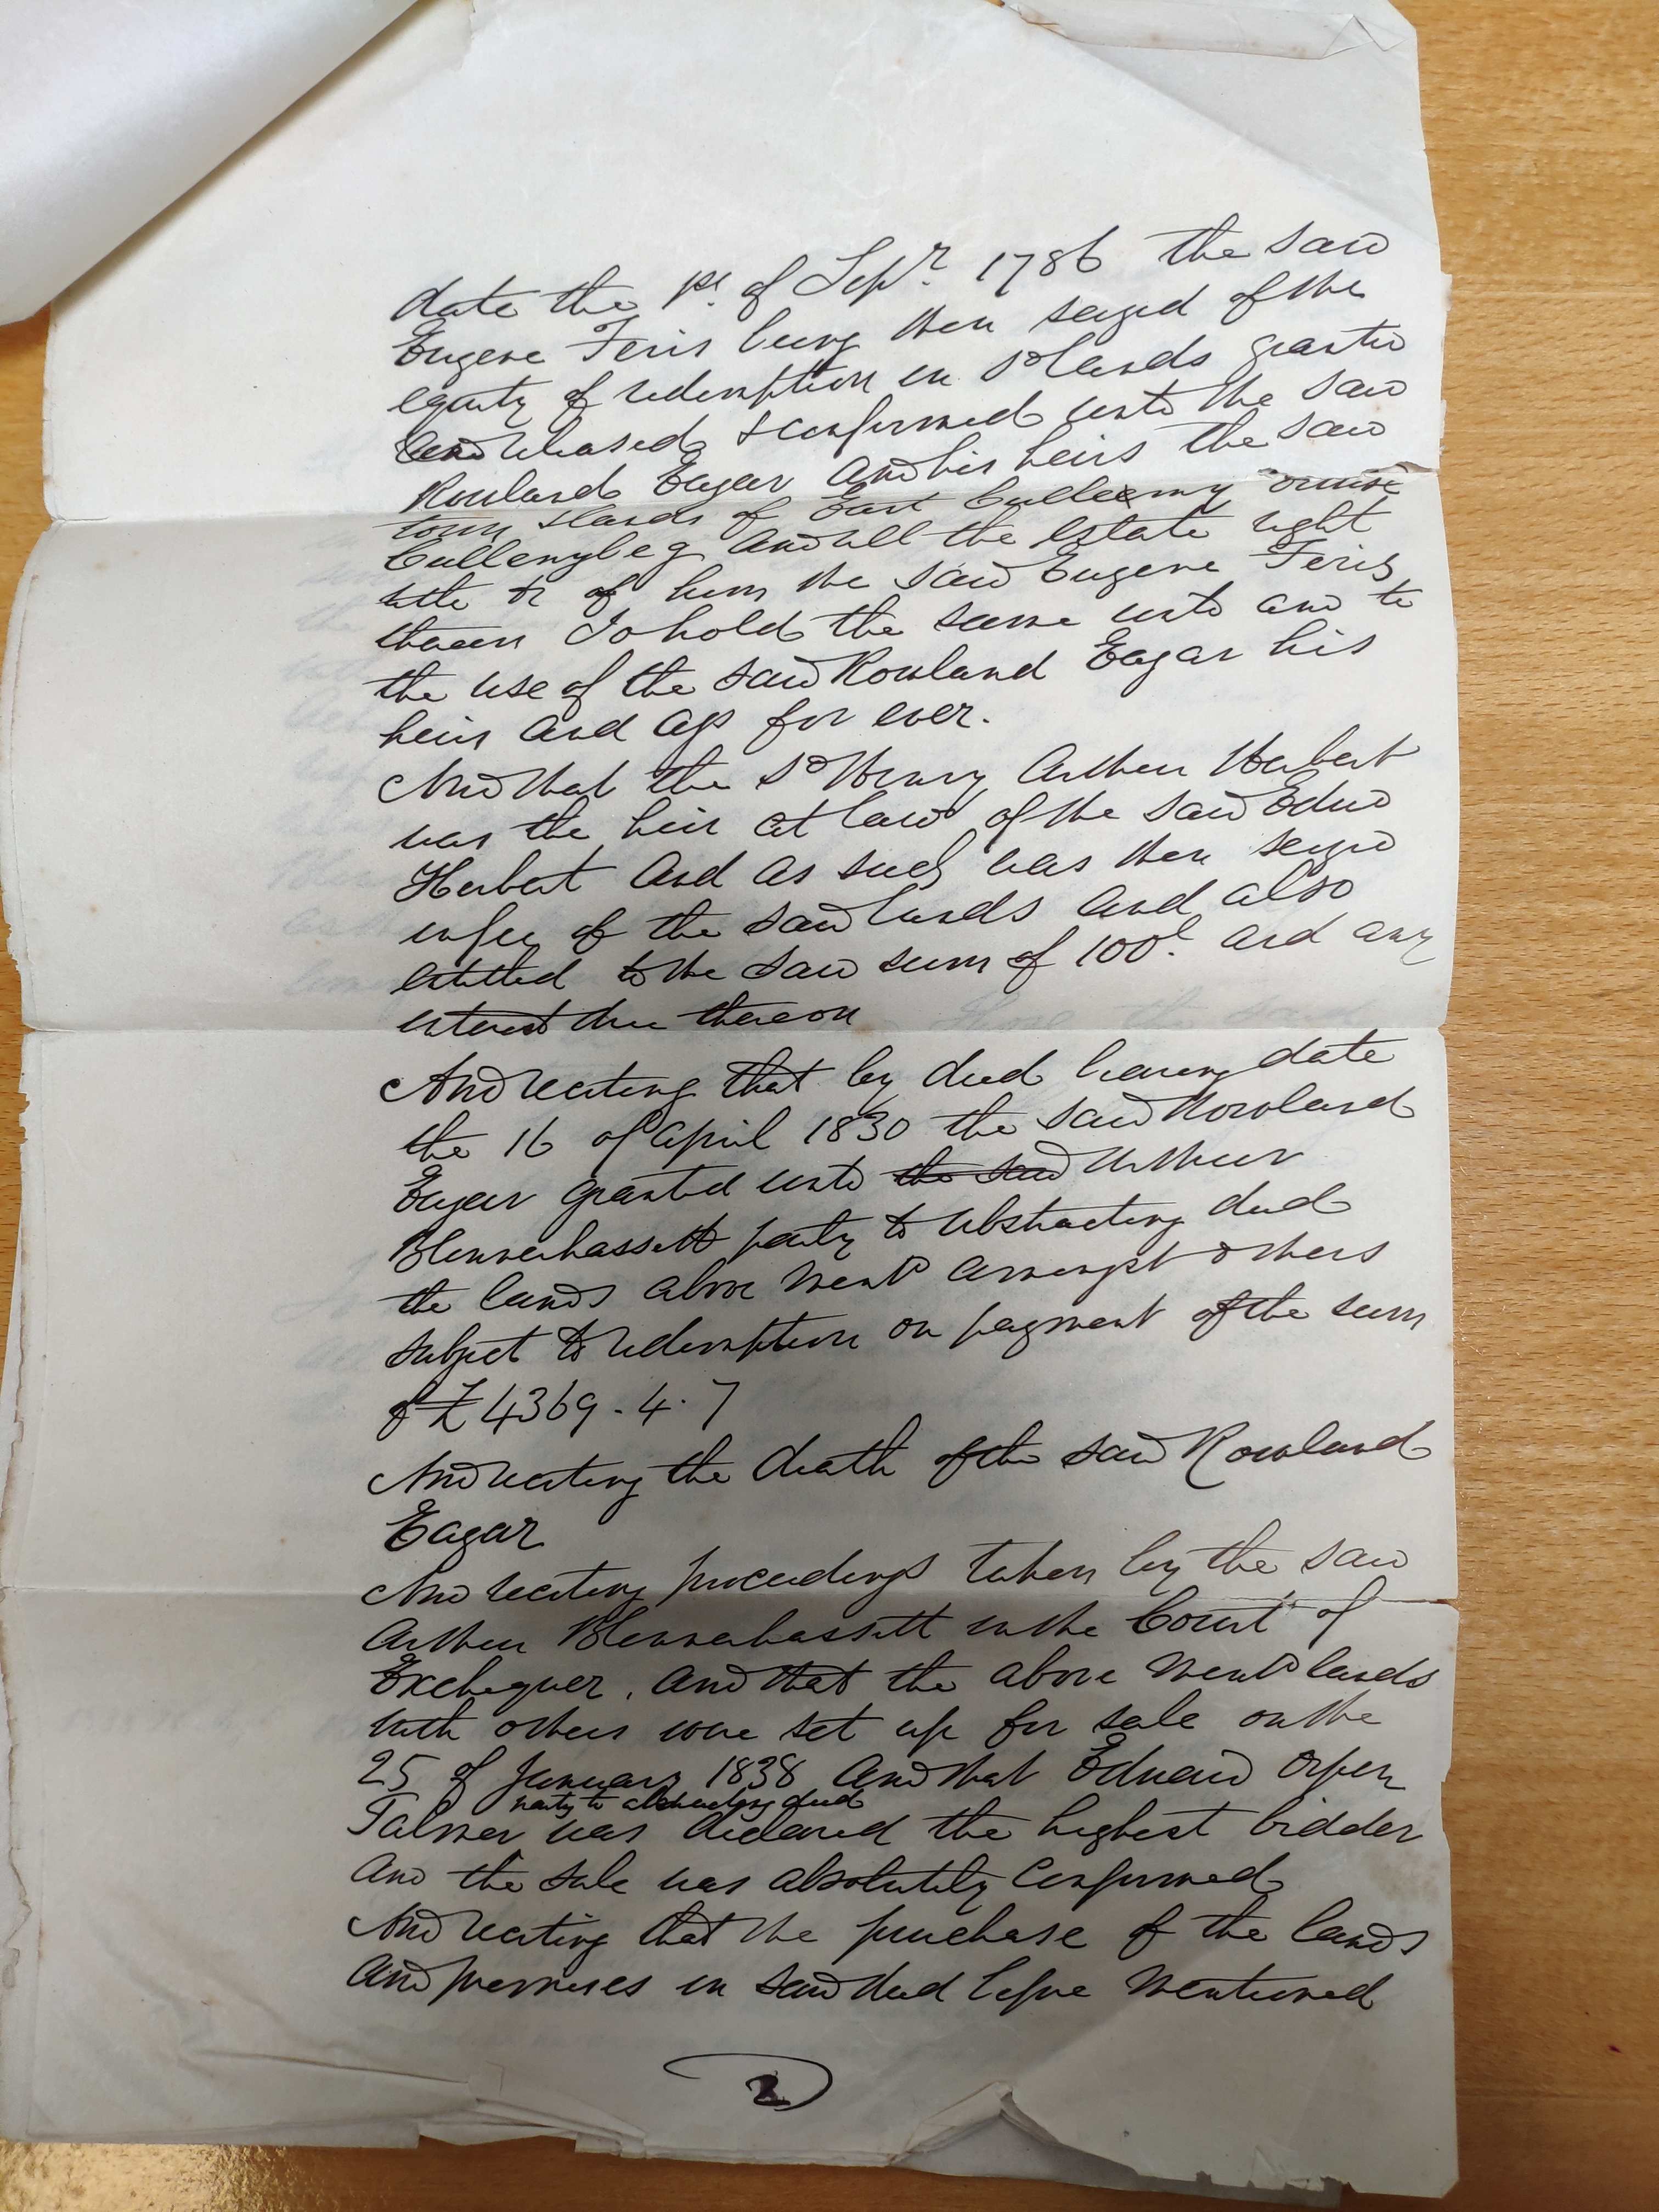 date the 1st. of Sepr. 1786 the said
Eugene Feris being then seized of the
equity of redemption in sd lands granted
and released & confirmed unto the said
Rowland Eagar and his heirs the said
town & lands of East Culleeny orwise
Cullenybeg and all the estate right
title &c of him the said Eugene Feris
therein To hold the same unto and to
the use of the said Rowland Eagar his
heirs and ass for ever.
And that the sd Henry Arthur Herbert
was the heir at law of the said Edwd
Herbert and as such was then seized
in fee of the said lands and also
entitled to the said sum of 100l. and any
interest due thereon
And reciting that by deed bearing date
the 16 of April 1830 the said Rowland
Eagar granted unto the said Arthur
Blennerhassett party to abstracting deed
the lands above mentd amongst others
subject to redemption on payment of the sum
of £4369.4.7
And reciting the death of the said Rowland
Eagar
And reciting proceedings taken by the said
Arthur Blennerhassett in the Court of
Exchequer, and that the above mentd lands
with others were set up for sale on the
25 of January 1838 and that Edward Orpen
party to abstracting deed
Palmer was declared the highest bidder
and the sale was absolutely confirmed
And reciting that the purchase of the lands
and premises in said deed before mentioned
2